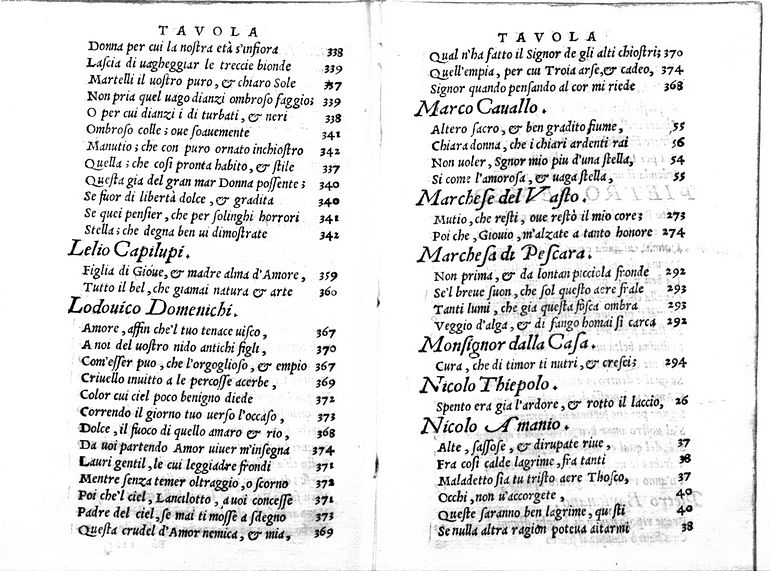 TAVOLA
Donna per cui la noſtra età s'infiora 338
Laſcia di uagheggiar le treccie bionde 339
Martelli il uoſtro puro, & chiaro Sole 337
Non pria quel uago dianzi ombroſo faggio; 339
O per cui dianzi i dì turbati, & neri 338
Ombroſo colle; oue ſoauemente 341
Manutio; che con puro ornato inchioſtro 342
Quella; che coſi pronta habito, & ſtile 337
Queſta gia del gran mar Donna poſſente; 340
Se fuor di libertà dolce, & gradita 340
Se quei penſier, che per ſolinghi horrori 341
Stella; che degna ben ui dimoſtrate 342
Lelio Capilupi.
Figlia di Gioue, & madre alma d'Amore, 359
Tutto il bel, che giamai natura & arte 360
Lodouico Domenichi.
Amore, affin che'l tuo tenace uiſco, 367
A noi del uoſtro nido antichi figli, 370
Com'eſſer puo, che l'orgoglioſo, & empio 367
Criuello inuitto a le percoſſe acerbe, 369
Color cui ciel poco benigno diede 372
Correndo il giorno tuo uerſo l'occaſo, 373
Dolce, il fuoco di quello amaro & rio, 368
Da uoi partendo Amor uiuer m'inſegna 374
Lauri gentil, le cui leggiadre frondi 371
Mentre ſenza temer oltraggio, o ſcorno 372
Poi che'l ciel, Lancilotto, a uoi conceſſe 371
Padre del ciel, ſe mai ti moſſe a ſdegno 373
Queſta crudel d'Amor nemica, & mia, 369
TAVOLA
Qual n'ha fatto il Signor de gli alti chioſtri; 370
Quell'empia, per cui Troia arſe, & cadeo, 374
Signor quando penſando al cor mi riede 368
Marco Cauallo.
Altero ſacro, & ben gradito fiume, 55
Chiara donna, che i chiari ardenti rai 56
Non uoler, Sgnor mio piu d'una ſtella, 54
Si come l'amoroſa, & uaga ſtella, 55
Marcheſe del Vaſto.
Mutio, che reſti, oue reſtò il mio core; 273
Poi che, Giouio, m'alzate a tanto honore 274
Marcheſa di Peſcara.
Non prima, & da lontan picciola fronde 292
Se'l breue ſuon, che ſol queſto aere frale 293
Tanti lumi, che gia queſta foſca ombra 293
Veggio d'alga, & di fango homai ſi carca 292
Monſignor dalla Caſa.
Cura, che di timor ti nutri, & creſci; 294
Nicolo Thiepolo.
Spento era gia l'ardore, & rotto il laccio, 26
Nicolo Amanio.
Alte, ſaſſoſe, & dirupate riue, 37
Fra coſi calde lagrime, fra tanti 38
Maladetto ſia tu triſto aere Thoſco, 37
Occhi, non u'accorgete, 40
Queſte ſaranno ben lagrime, queſti 40
Se nulla altra ragion poteua aitarmi 38